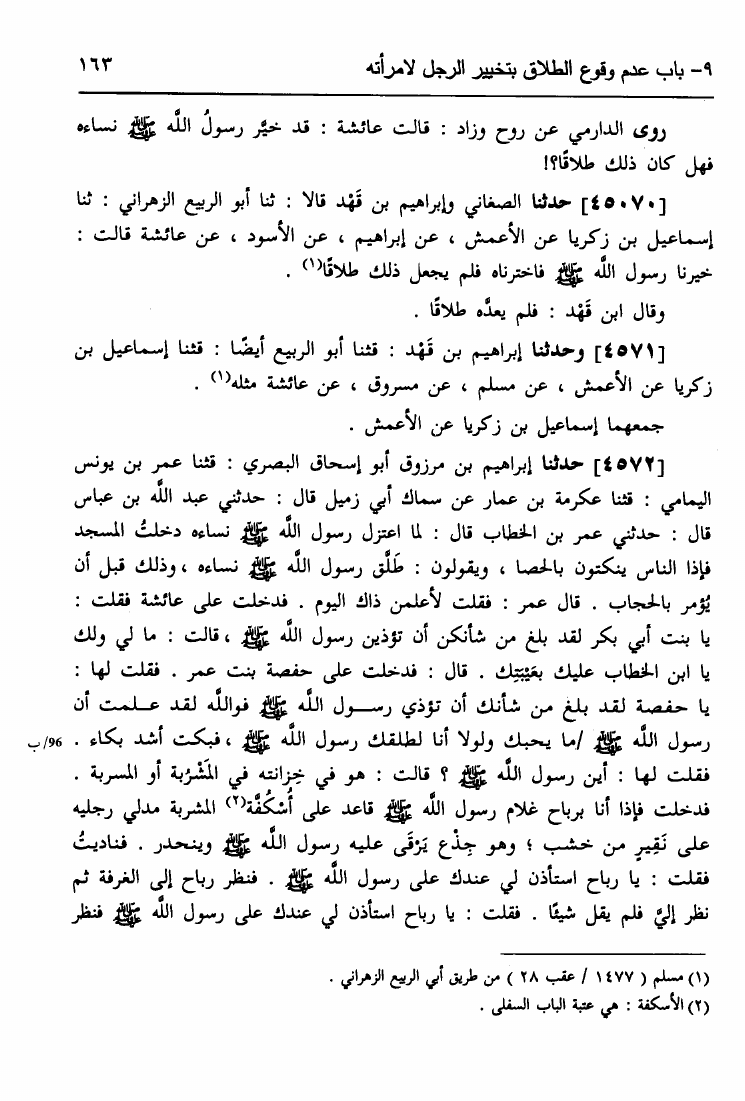 ٩- باب عدم وقوع الطلاق بتخيير الرجل لامرأته ١٦٣
روى الدارمي عن روح وزاد : قالت عائشة : قد خيَّر رسولُ اللَّه ﷺ نساءه
فهل كان ذلك طلاقًا؟!
[٤٥٠٧٠] حدثنا الصغاني وإبراهيم بن قَهْد قالا : ثنا أبو الربيع الزهراني : ثنا
إسماعيل بن زكريا عن الأعمش ، عن إبراهيم ، عن الأسود ، عن عائشة قالت :
خيرنا رسول اللَّه ﷺ فاخترناه فلم يجعل ذلك طلاقًا(١) .
وقال ابن قَهْد : فلم يعدَّه طلاقًا .
[٤٥٧١] وحدثنا إبراهيم بن قَهْد : قثنا أبو الربيع أيضًا : قثنا إسماعيل بن
زكريا عن الأعمش ، عن مسلم ، عن مسروق ، عن عائشة مثله(١) .
جمعهما إسماعيل بن زكريا عن الأعمش .
[٤٥٧٢] حدثنا إبراهيم بن مرزوق أبو إسحاق البصري : قثنا عمر بن يونس
اليمامي : قثنا عكرمة بن عمار عن سماك أبي زميل قال : حدثني عبد اللَّه بن عباس
قال : حدثني عمر بن الخطاب قال : لما اعتزل رسول اللَّه ﷺ نساءه دخلتُ المسجد
فإذا الناس ينكتون بالحصا ، ويقولون : طَلَّق رسول اللَّه ﷺ نساءه ، وذلك قبل أن
يُؤمر بالحجاب . قال عمر : فقلت لأعلمن ذاك اليوم . فدخلت على عائشة فقلت :
يا بنت أبي بكر لقد بلغ من شأنكن أن تؤذين رسول اللَّه ﷺ ، قالت : ما لي ولك
يا ابن الخطاب عليك بعَيْبَتِك . قال : فدخلت على حفصة بنت عمر . فقلت لها :
يا حفصة لقد بلغ من شأنك أن تؤذي رسول اللَّه ﷺ فواللَّه لقد علمت أن
رسول اللَّه ﷺ /ما يحبك ولولا أنا لطلقك رسول اللَّه ﷺ ، فبكت أشد بكاء . 96/ب
فقلت لها : أين رسول اللَّه ﷺ ؟ قالت : هو في خِزانته في المَشْرُبة أو المسربة .
فدخلت فإذا أنا برباح غلام رسول اللَّه ﷺ قاعد على أُسْكُفَّة(٢) المشربة مدلي رجليه
على نَقِيرٍ من خشب ؛ وهو جِذْع يَرْقَى عليه رسول اللَّه ﷺ وينحدر . فناديتُ
فقلت : يا رباح استأذن لي عندك على رسول اللَّه ﷺ . فنظر رباح إلى الغرفة ثم
نظر إليَّ فلم يقل شيئًا . فقلت : يا رباح استأذن لي عندك على رسول اللَّه ﷺ فنظر
(١) مسلم ( ١٤٧٧ / عقب ٢٨ ) من طريق أبي الربيع الزهراني .
(٢) الأسكفة : هي عتبة الباب السفلى .